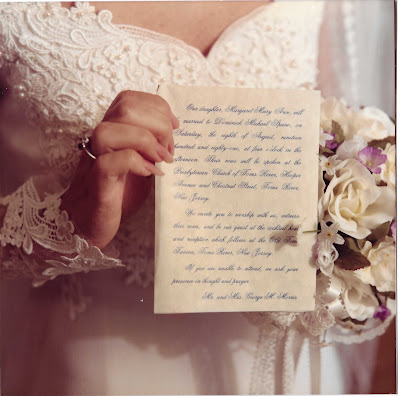 Our daughter, Margaret Mary Ann, will
be married to Dominick Michael, on
Saturday, the eighth of August, nineteen
hundred and eighty-one, at four o'clock in the
afternoon. Their vows will be spoken at the
Presbyterian Church of Toms River, Hooper
Avenue and Chestnut Street, Toms River,
New Jersey.
We invite you to worship with us, witness
their vows, and be our guest at the cocktail hour
and reception which follows at the Old Time
Tavern, Toms River, New Jersey.
If you are unable to attend, we ask your
presence in thought and prayer.
Mr. and Mrs. George H. Morris